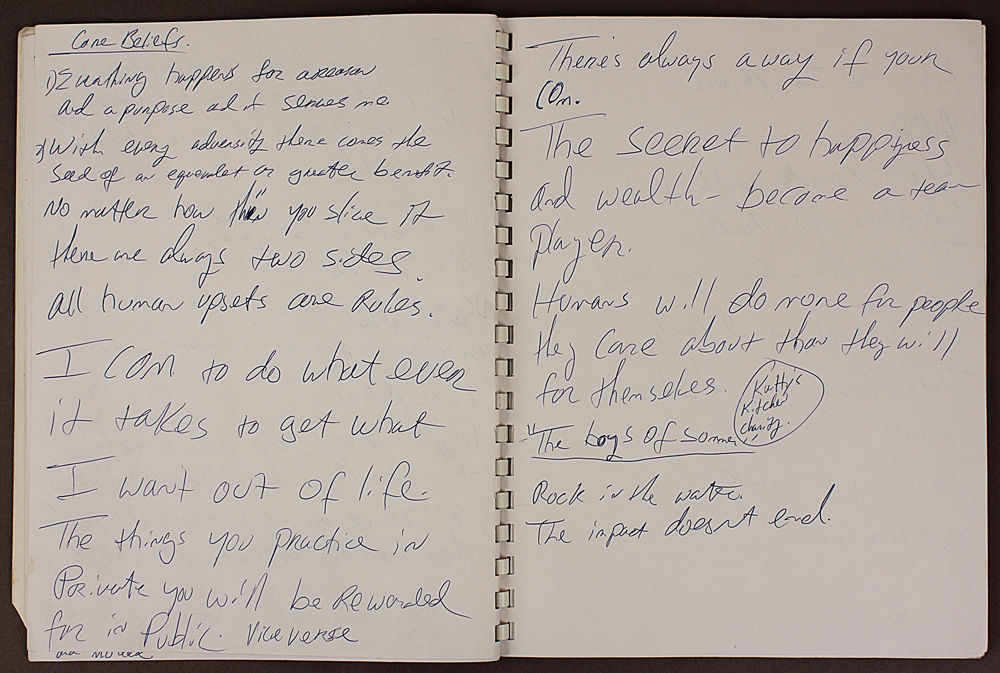 Core Beliefs.
1) Everything happens for a reason
and a purpose and it serves me.
2) With every adversity there comes the
seed of an equivalent or greater benefit.
No matter how thin you slice it
there are always two sides.
all human upsets are Rules.
I com to do what ever
it takes to get what
I want out of life.
The things you practice in
Private you will be Rewarded
for in Public. Viceverse
There's always a way if your
com.
The secret to happiness
and wealth - become a team
player.
Humans will do more for people
they care about than they will
for themselves.
Kutty's
Kitchen
charity.
The boys of somme
Rock in the water.
The impact doesn't end.